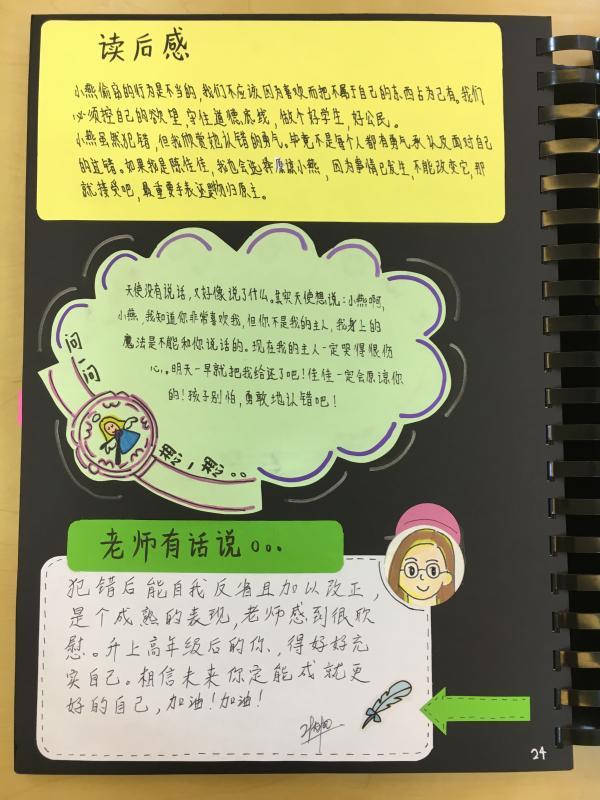 读后感
小燕偷窃的行为是不当的，我们不应该因为喜欢而把不属于自己的东西占为己有。我们
必须控自己的欲望，守住道德底线，做个好学生，好公民。
小燕虽然犯错，但我欣赏她认错的勇气。毕竟不是每个人都有勇气承认及面对自己
的过错。如果我是陈佳佳，我也会选择原谅小燕，因为事情已发生，不能改变它，那
就接受吧，最重要手表还是物归原主。
天使没有说话，又好像说了什么。其实天使想说：小燕啊，
小燕，我知道你非常喜欢我，但你不是我的主人，我身上的
魔法是不能和你说话的。现在我的主人一定哭得很伤
心。明天一早就把我给还了吧！佳佳一定会原谅你
的！孩子别怕，勇敢地认错吧！
问一问
想一想。。
老师有话说。。。
犯错后能自我反省且加以改正，
是个成熟的表现，老师感到很欣
慰。升上高年级后的你，得好好充
实自己。相信未来你定能成就更
好的自己，加油！加油！
24